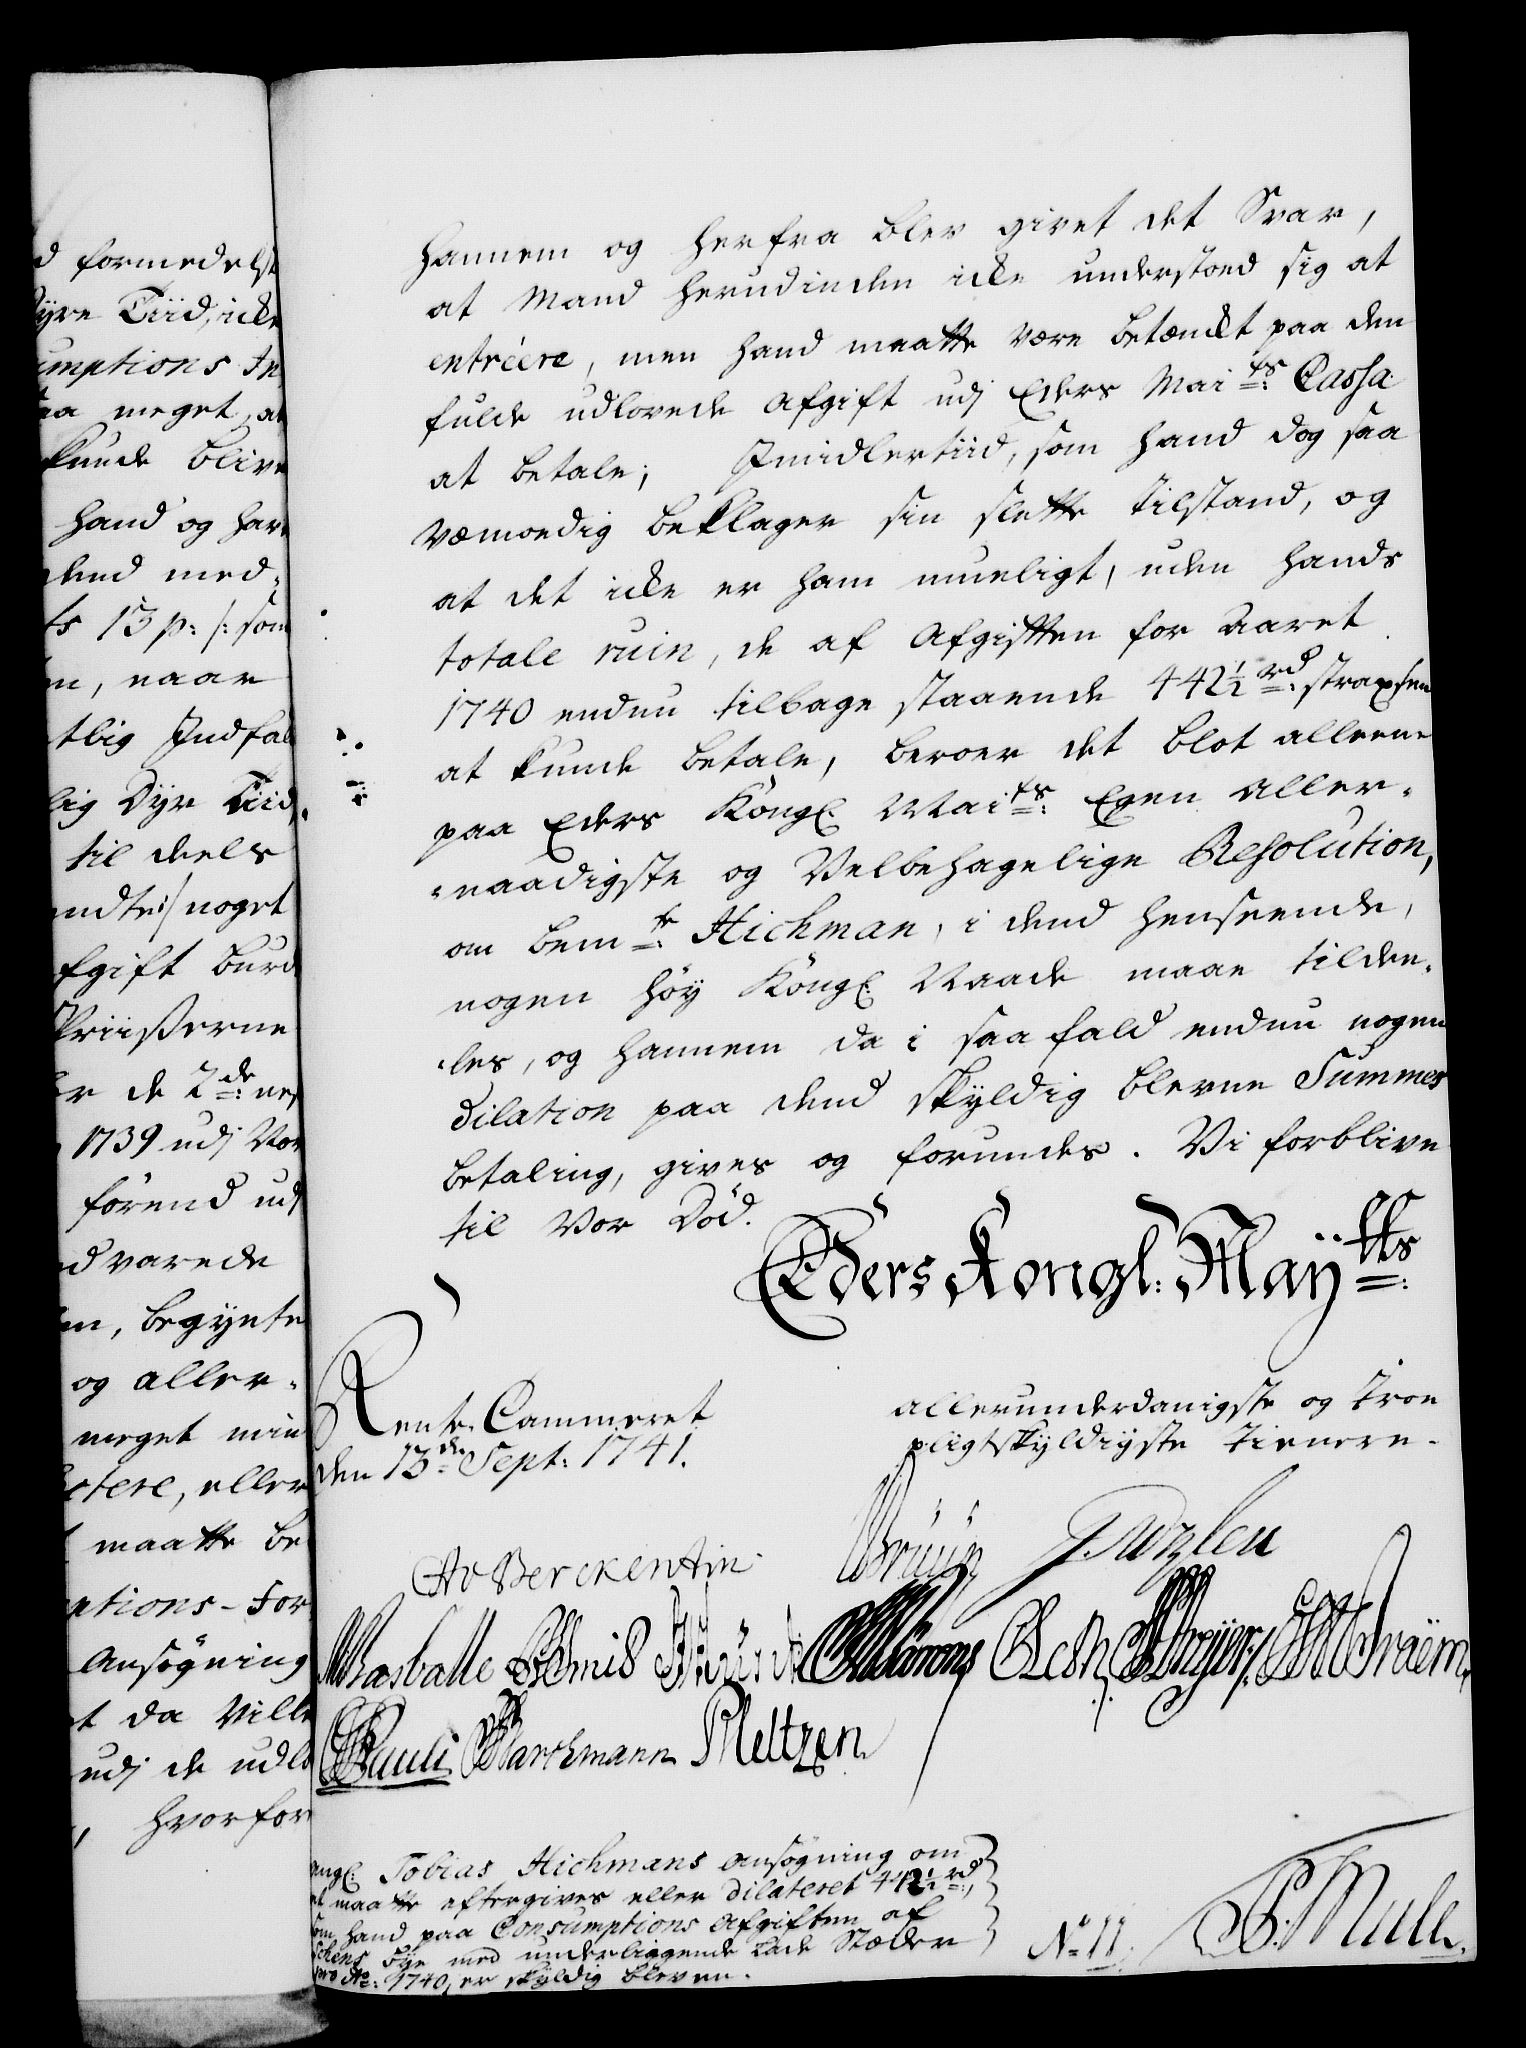 d formedelst
dyre Tiid, icke
umptions In
saa meget, at
kunde blive
hand og har
dend med-
ts 13 p: /: som
n, naar
tlig Indfal
lig Dyr Tiid,
til deels
endte:/ noget
fgift burd
Priisserne
de 2de: nest
1739 udj Vor
förend udj
dvarede
en, begynte
og aller-
meget min
ctere, eller
maatte be
ptions-For
Ansøgning
da Ville
udj de udlo
, hvorfor
hannem og herfra blev givet det Svar,
at Mand herudinden icke understoed sig at
entréere, men hand maatte være betænckt paa den
fulde udlovede Afgift udj Eders Maits: Cassa
at betale; Imidlertiid, som hand dog saa
væmoedig beklager sin slette Tilstand, og
at det icke er ham mueligt, uden hands
totale ruin, de af Afgiften for Aaret
1740 endnu tilbage staaende 442½ rd: straxsen
at kunde betale, beroer det blot alleene
paa Eders Köngl. Maits: Egen Aller-
-naadigste og Velbehagelige Resolution,
om bemte: Hichman, i dend henseende,
nogen höy Köngl. Naade maae tildee-
-les, og hannem da i saa fald endnu nogen
dilation paa dend skyldig blevne Summes
betaling, gives og forundes. Vi forblive
til Vor Död.
Eders Kongl: Maytts:
Rente Cammeret
den 13de Sept: 1741.
allerunderdanigste og Troe
pligtskyldigste Tienere.
CAvBerckentin. Bruün
MRasballe
CPauli Barchmann PMeltzen
angl. Tobias Hichmans ansøgning om
et maatte eftergives eller dilateret 442½ rd:,
som hand paa Consumptions Afgiften af
Schens Bye med underliggende Lade Stæder
pro Ao: 1740, er skyldig bleven.
No 11.
P. Mule.